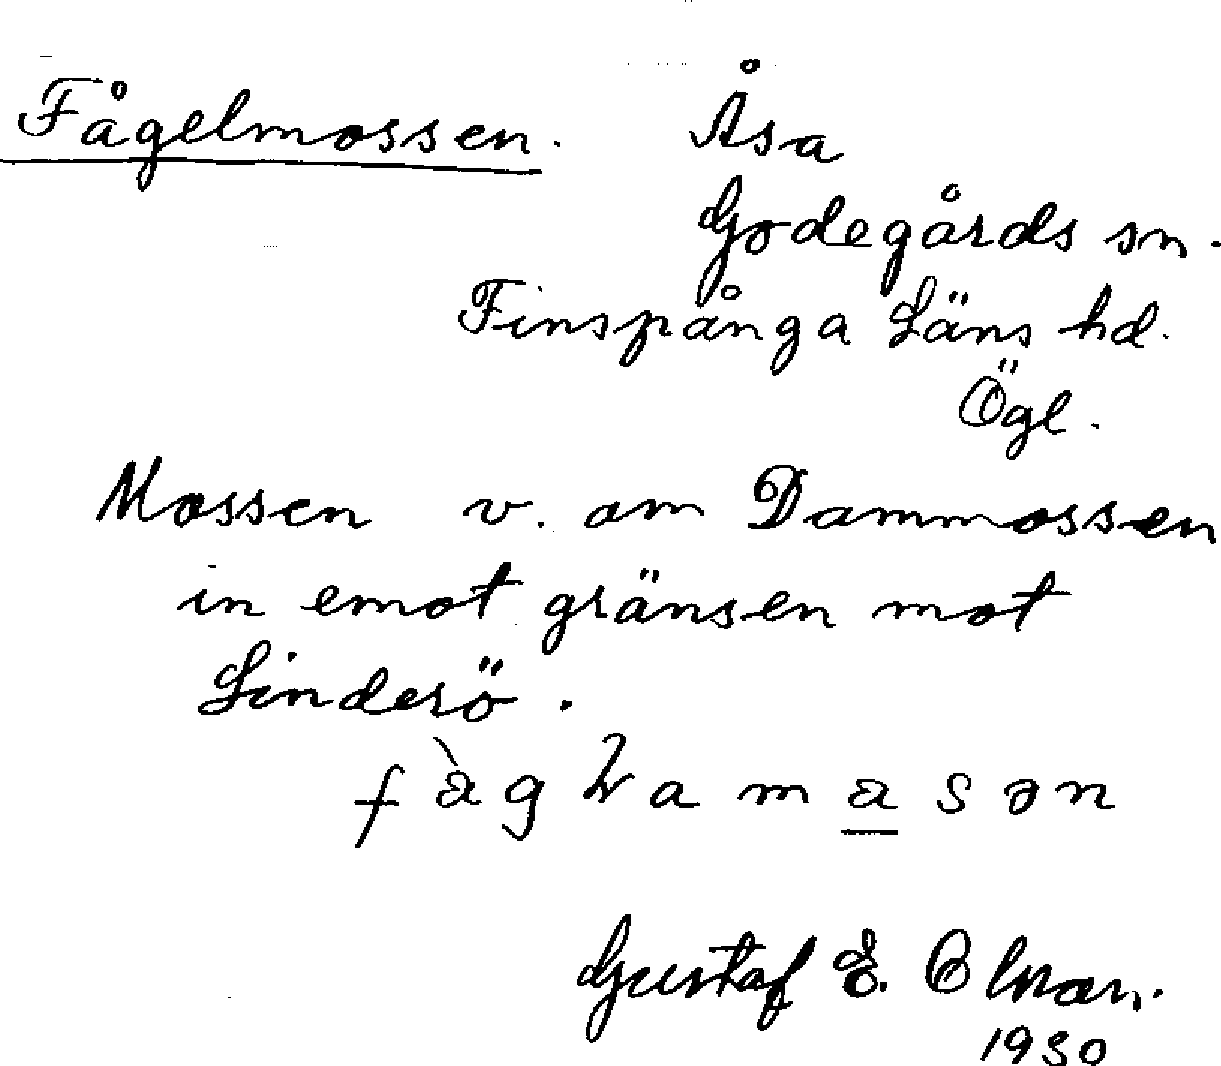 Fågelmossen. Åsa
Godegårds sn.
Finspånga Läns hd.
Ögl.
Mossen v. om Dammossen
in emot gränsen mot
Linderö.
Gustaf E. Olson.
1930